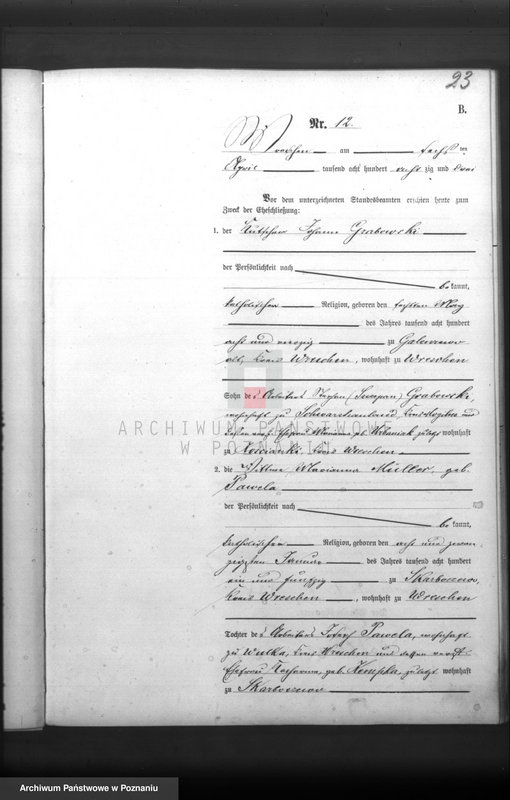 23
B.
Nr. 12.
Wreschen am sechsten
April tausend acht hundert achtzig und drei
Vor dem unterzeichneten Standesbeamten erschien heute zum
Zweck der Eheschließung:
1. der Kutscher Johann Grabowski
der Persönlichkeit nach
bekannt,
katholischer Religion, geboren den
des Jahres tausend acht hundert
acht und vierzig zu
Kreis Wreschen, wohnhaft zu Wreschen
Sohn des Arbeiters Stephan (Szczepan) Grabowski,
wohnhaft zu und
dessen Ehefrau Marianna geb. zuletzt wohnhaft
zu Kreis Wreschen
2. die Wittwe Marianna Müller, geb.
Pawela
der Persönlichkeit nach
bekannt,
katholischer Religion, geboren den acht und zwan
zigsten Januar des Jahres tausend acht hundert
ein und fünfzig zu Skarboszewo,
Kreis Wreschen, wohnhaft zu Wreschen
Tochter des Arbeiters Joseph Pawela, wohnhaft
zu Wulka, Kreis Wreschen und dessen
Ehefrau Katharina, geb. zuletzt wohnhaft
zu Skarboszewo
ARCHIWUM PAŃSTWOWE
W POZNANIU
Archiwum Państwowe w Poznaniu